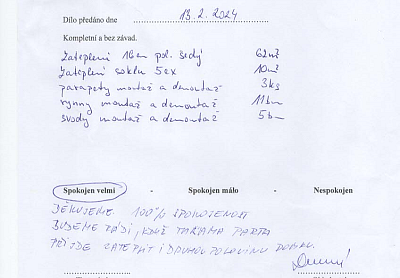 Dílo předáno dne 13. 2. 2024
Kompletní a bez závad.
Zateplení 16cm pol. šedý 62m²
Zateplení soklu 5cx 10m²
parapety montaž a demontaž 3ks
rynny montaž a demontaž 11bm
svody montaž a demontaž 5bm
Spokojen velmi - Spokojen málo - Nespokojen
DĚKUJEME. 100% SPOKOJENOST
BUDEME RÁDI, KDYŽ PARTA
PŘIJDE ZATEPLIT I DRUHOU POLOVINU DOMKU.